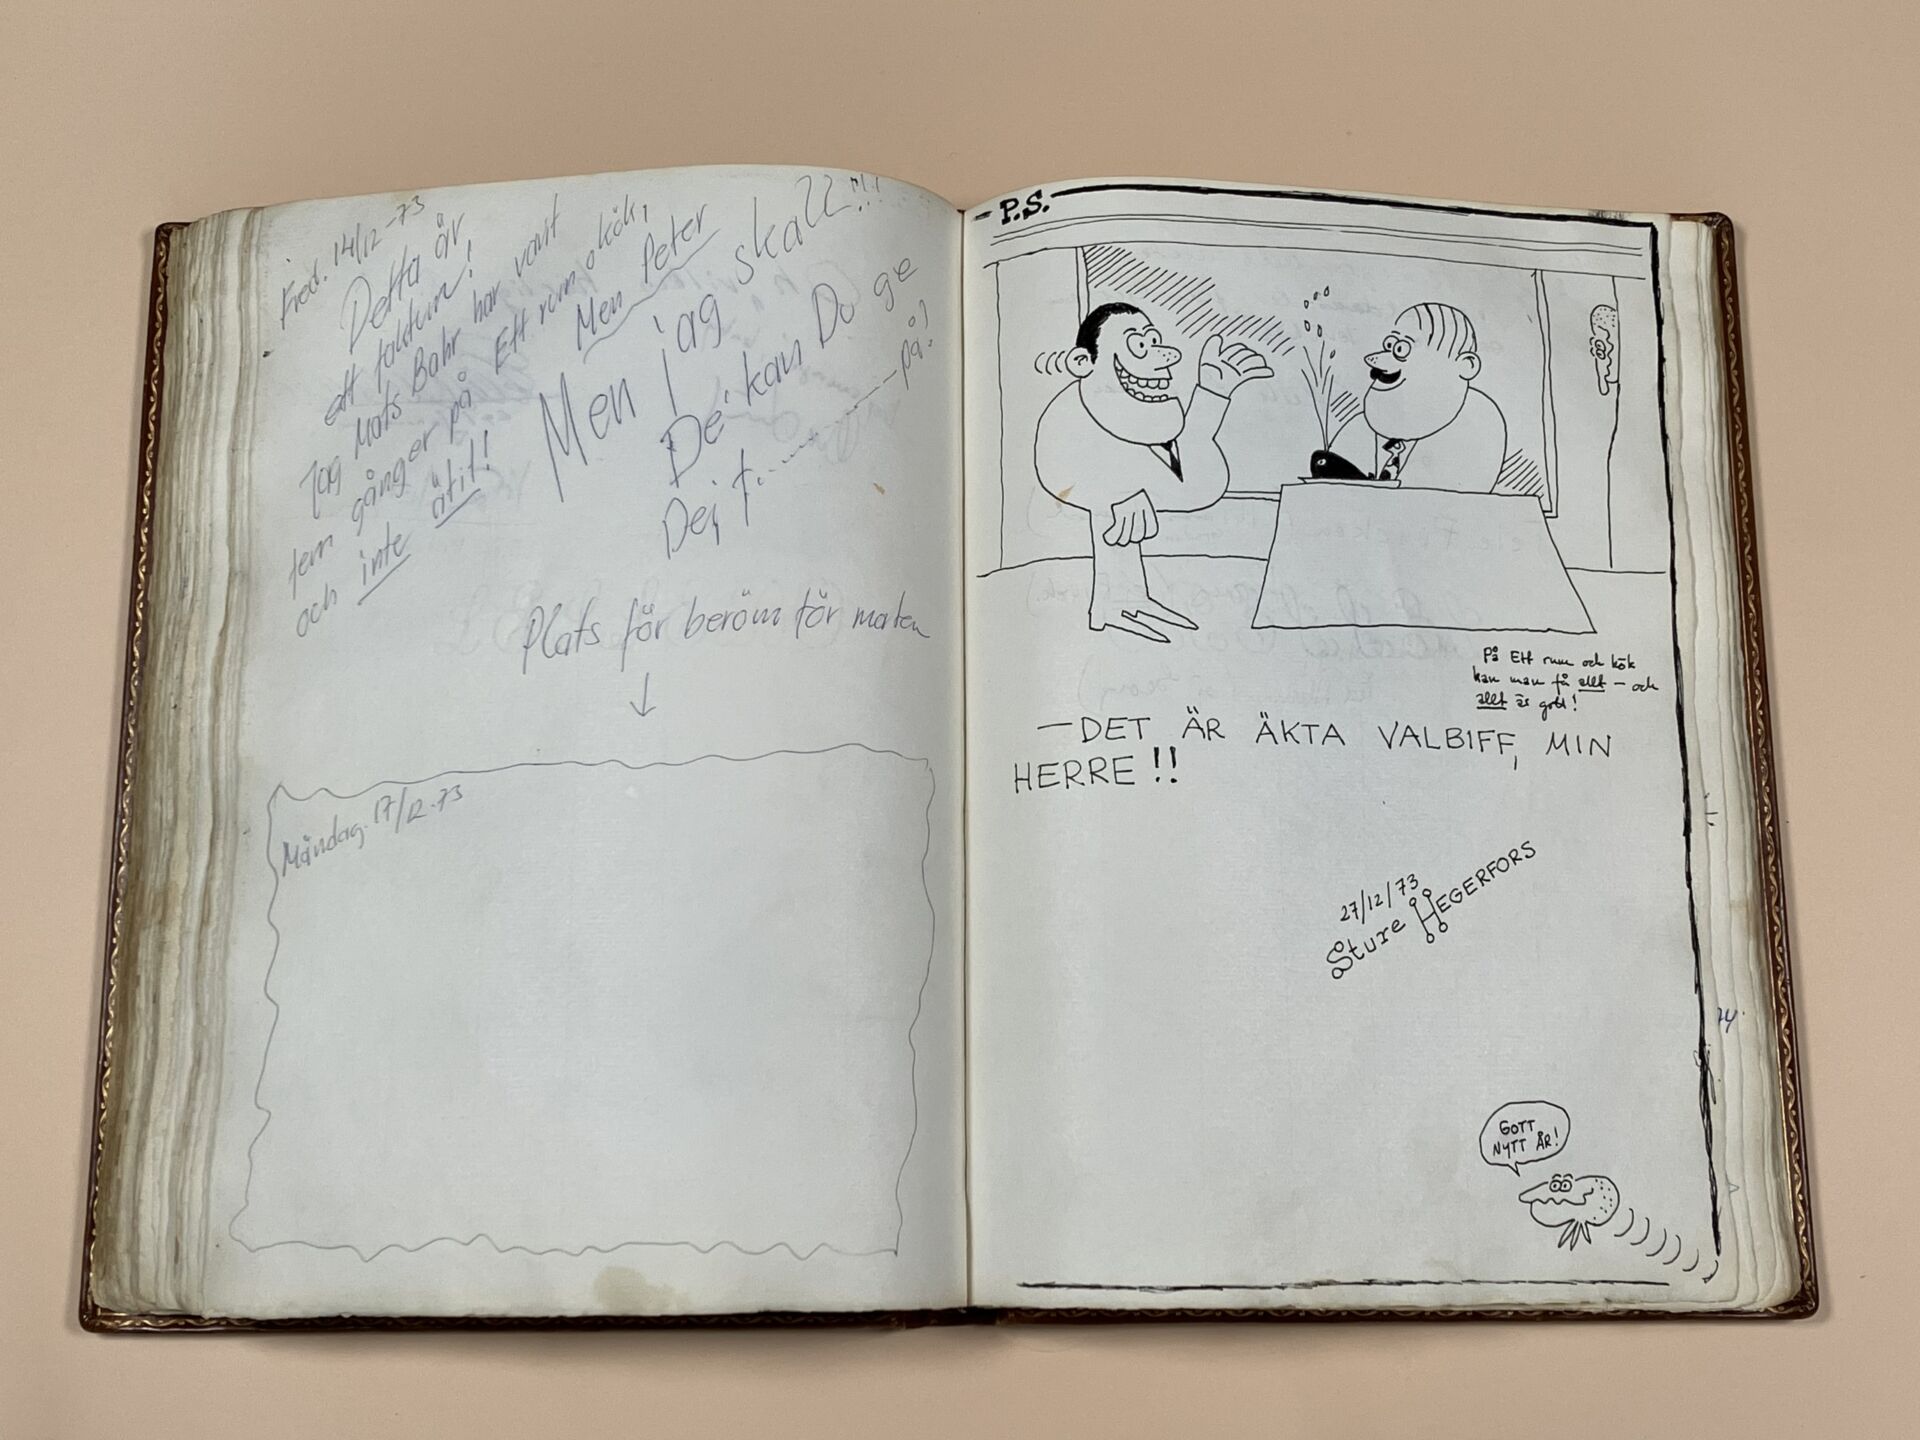 Fred. 14/12-73
Detta är
ett faktum!
Jag Mats Bahr har varit
fem gånger på Ett rum o kök,
och inte ätit!
Men Peter
Men jag skall!!!
De' kan Du ge
Dej f............på!
Plats för beröm för maten
Måndag. 17/12-73
P.S.
På Ett rum och kök
kan man få allt - och
allt är gott!
—DET ÄR ÄKTA VALBIFF, MIN
HERRE!!
27/12/73
Sture HEGERFORS
GOTT
NYTT ÅR!